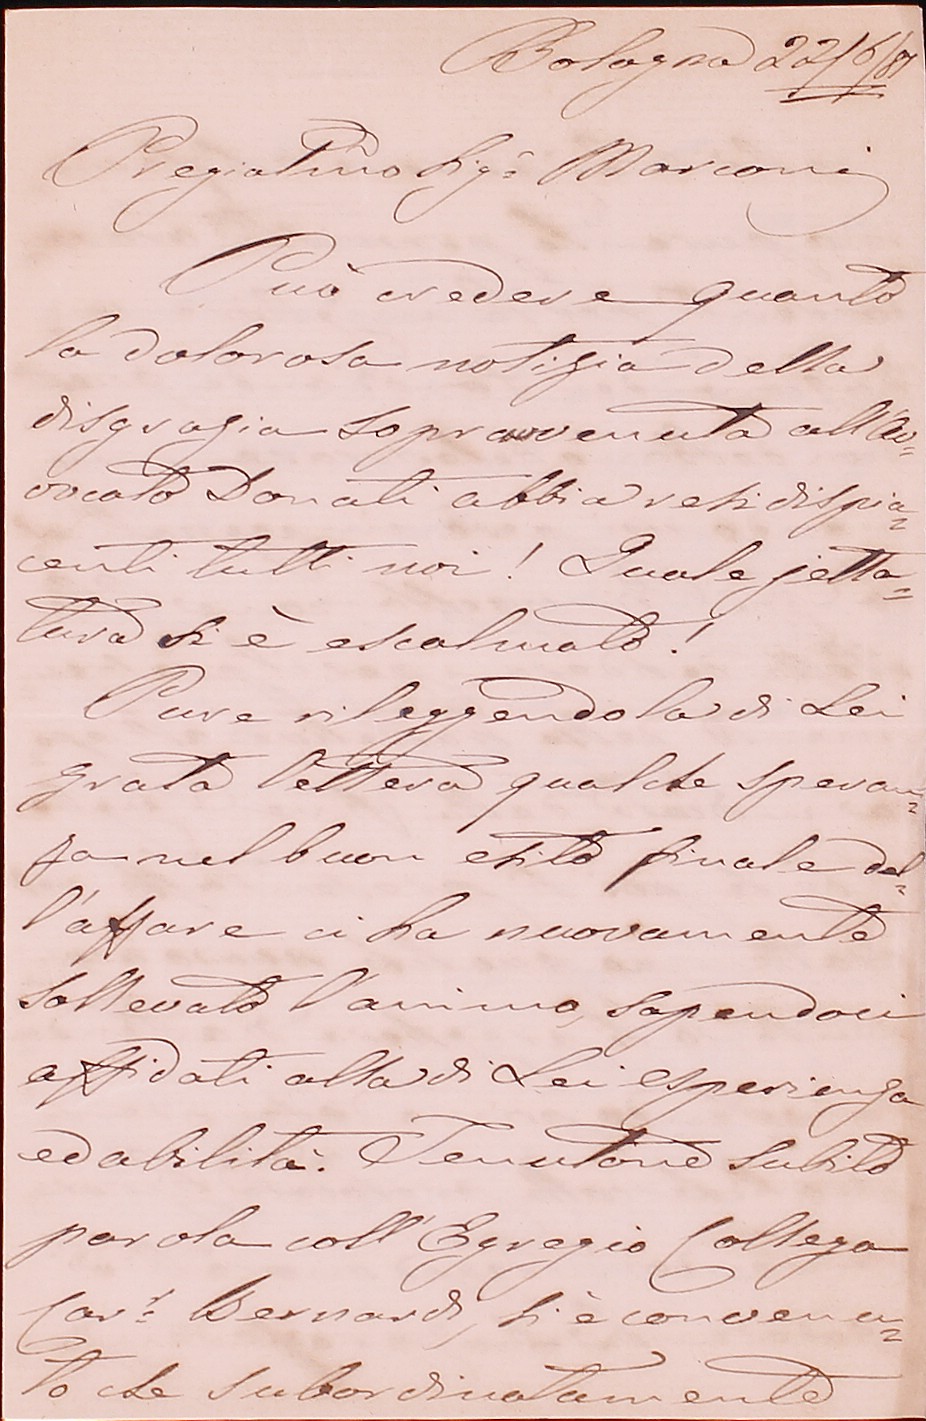 Bologna 22/6/81
Pregiatmo Sigr Marconi
Può credere quanto
la dolorosa notizia della
disgrazia sopravvenuta all'av=
vocato Donati abbia resi dispia=
centi tutti noi! Quale jetta=
tura si è !
Pure rileggendo la di Lei
grata lettera qualche speran=
za nel buon esito finale del=
l'affare ci ha nuovamente
sollevato l'animo, sapendoci
affidati alla di Lei esperienza
ed abilità. Tenutone subito
parola coll'Egregio Collega
Cavr Bernardi, si è convenu=
to che subordinatamente